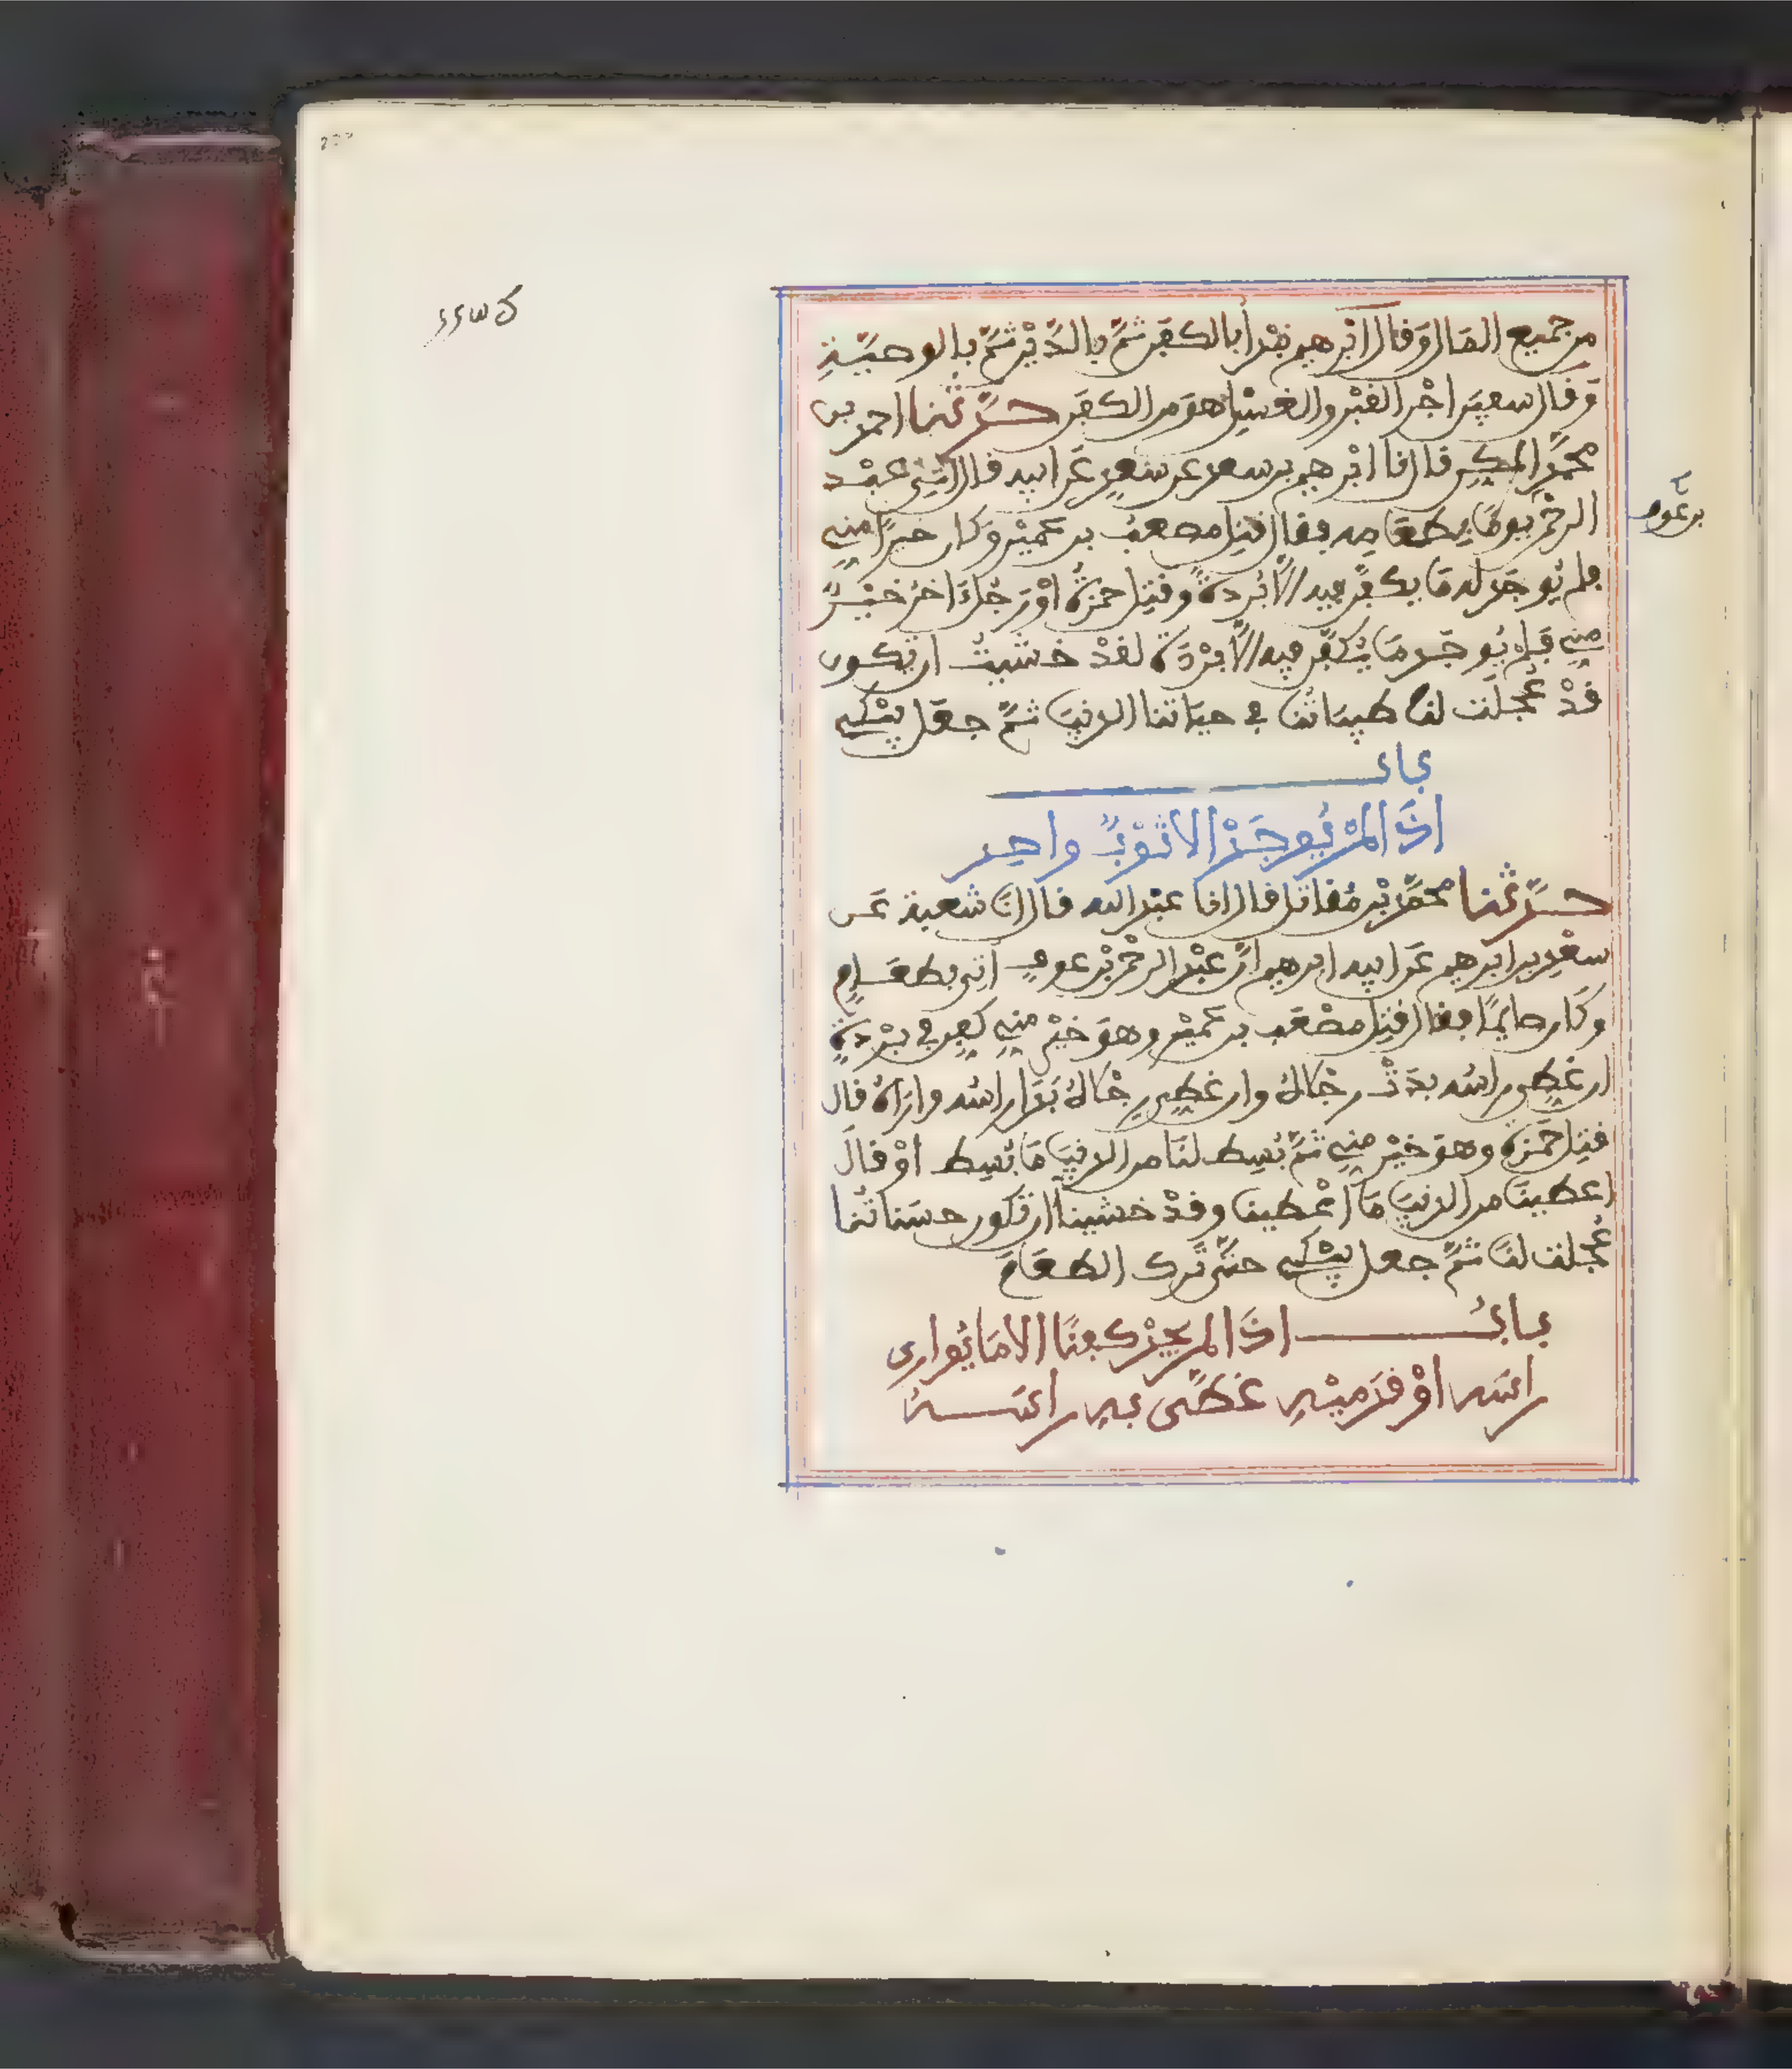 من جميع المال وقال ابرهيم يبدأ بالكفن ثم بالدين ثم بالوصية
وقال سعيد اجر القبر والغسل هو من الكفن حدثنا احمد بن
محمد المكي قال نا ابرهيم بن سعد عن سعد عن ابيه قال اتي عبد
الرحمن يوما بطعامه فقال قتل مصعب بن عمير وكان خيرا مني
بن عوف
فلم يوجد له ما يكفن فيه الا بردة وقتل حمزة او رجل اخر خير
مني فلم يوجد ما يكفن فيه الا بردة لقد خشيت ان يكون
قد عجلت لنا طيباتنا في حياتنا الدنيا ثم جعل يبكي
باب
اذا لم يوجد الا ثوب واحد
حدثنا محمد بن مقاتل قال انا عبد الله قال انا شعبة عن
سعد بن ابرهيم عن ابيه ابرهيم ان عبد الرحمن بن عوف اتي بطعام
وكان صايما فقال قتل مصعب بن عمير وهو خير مني كفن في بردة
ان غطي راسه بدت رجلاه وان غطي رجلاه بدا راسه واراه قال
قتل حمزة وهو خير مني ثم بسط لنا من الدنيا ما بسط او قال
اعطينا من الدنيا ما اعطينا وقد خشينا ان تكون حسناتنا
عجلت لنا ثم جعل يبكي حتى ترك الطعام
باب اذا لم يجد كفنا الا ما يواري
راسه او قدميه غطى به راسه